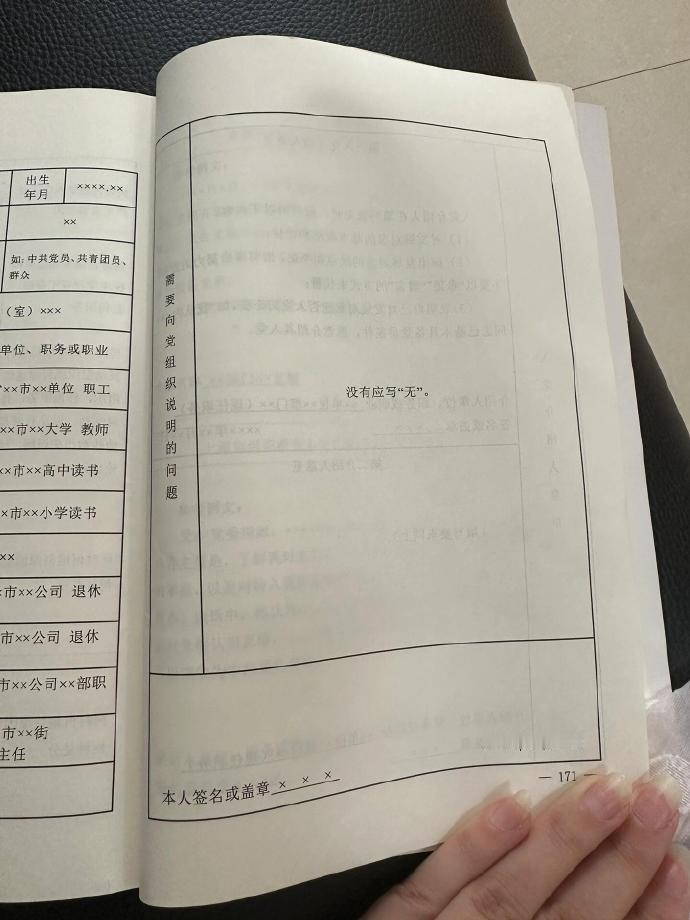 出生
年月
××××.××
××
如: 中共党员、共青团员、
群众
（室）×××
单位、职务或职业
××市××单位 职工
××市××大学 教师
××市××高中读书
×市××小学读书
××
×市××公司 退休
市××公司 退休
市××公司××部职
市××街
主任
需要向党组织说明的问题
没有应写“无”。
本人签名或盖章 × × ×
— 171 —